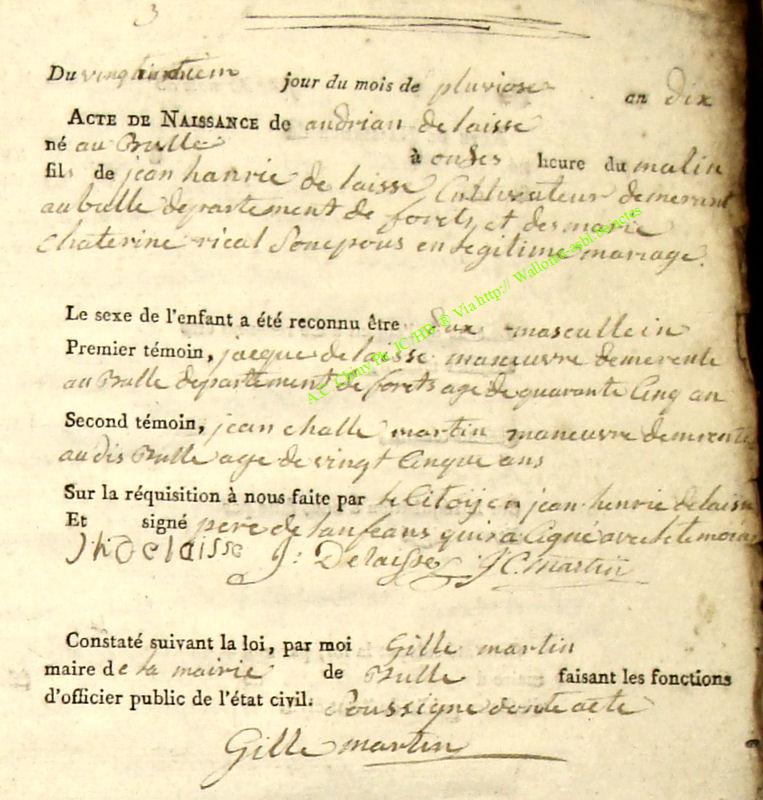 3
Du jour du mois de pluviose an dix
ACTE DE NAISSANCE de andrian delaisse
né au Bulle à onses heure du matin
fils de jean hanrie de laisse Cultivateur demerant
au bulle departement de forets et des marie
Chaterine rical Sonepous en legitime mariage.
Le sexe de l'enfant a été reconnu être Sux mascullein
Premier témoin, jacque de laisse manœuvre demerente
au Bulle departement de forets age de quarante Cinq an
Second témoin, jean challe martin manœuvre demrente
au dis Bulle age de vingt Cinque ans
Sur la réquisition à nous faite par le Citoÿen jean henrie delaisse
Et signé pere de lanfeans quira Cigné avec le temoins
J h Delaisse J: Delaisse J C. martin
Constaté suivant la loi, par moi Gille martin
maire de la mairie de Bulle faisant les fonctions
d'officier public de l'état civil. Soussigne donte acte
Gille martin
A.E. Via http:// Wallonie asbl Sanctes